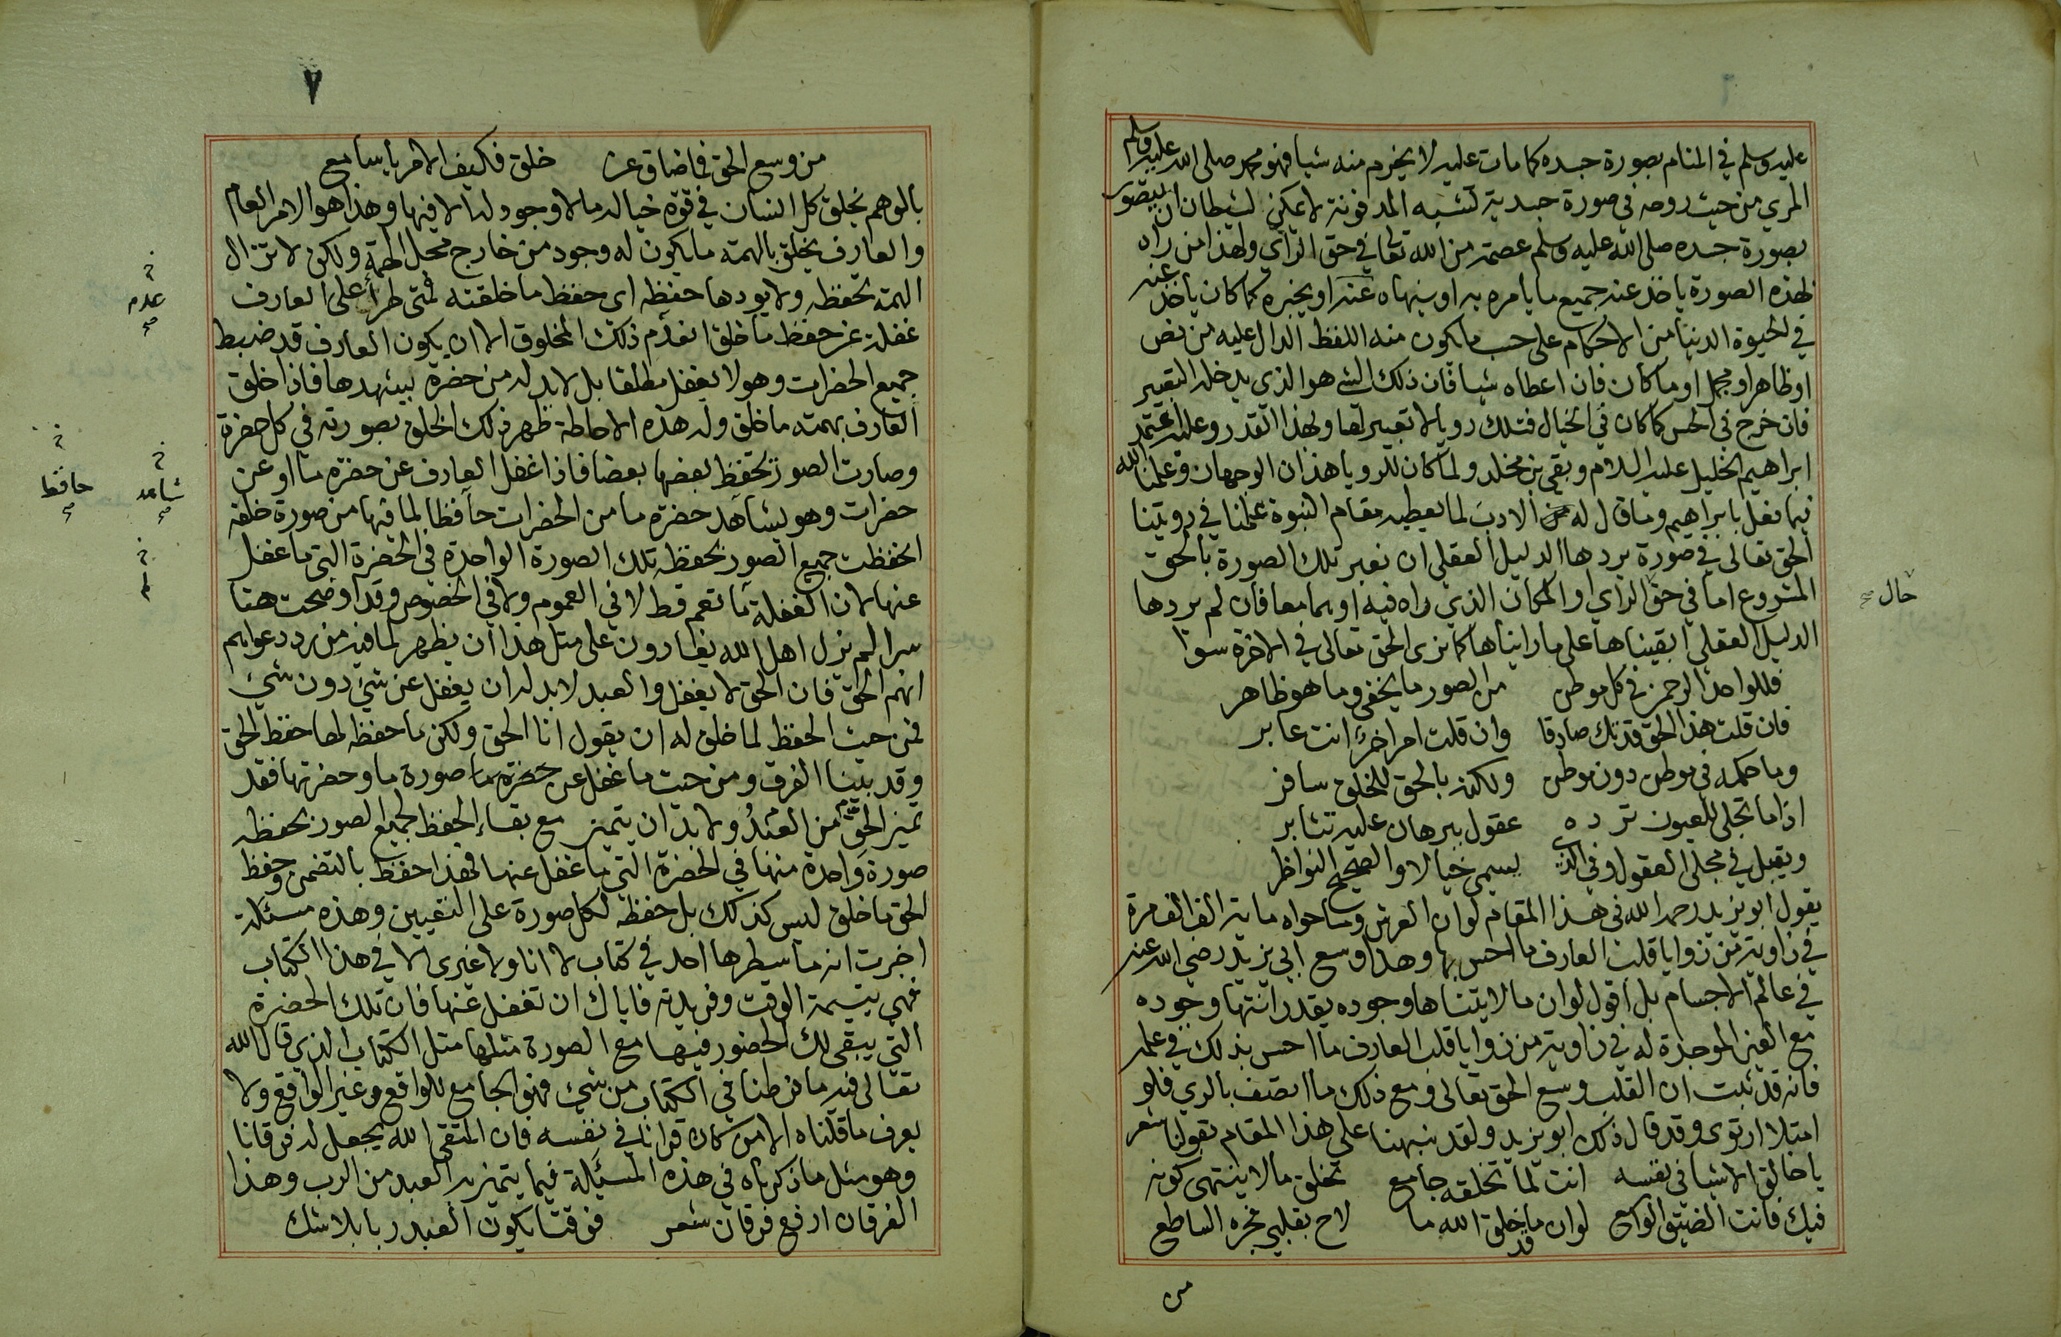 عليه وسلم في المنام بصورة جسده كما مات عليه لا يخرم منه شيا فهو محمد صلى الله عليه وسلم
المري من حيث روحه في صورة جسدية تشبه المدفونة لا يمكن لشيطان ان يتصور
بصورة جسده صلى الله عليه وسلم عصمة من الله تعالى في حق الرائ ولهذا من راه
لهذه الصورة ياخذ عنه جميع ما يامره به او ينهاه عنه او يخبره كما كان ياخذ عنه
في الحيوة الدنيا من الاحكام على حسب ما يكون منه اللفظ الدال عليه من نص
او ظاهر او مجمل او ما كان فان اعطاه شيا فان ذلك الشئ هو الذي يدخله التعبير
فان خرج في الحس كما كان في الخيال فتلك رويا لا تعبير لها ولهذا القدر وعليه اعتمد
ابراهيم الخليل عليه السلام وبقي بن مخلد ولما كان للرويا هذان الوجهان وعلمنا الله
فيما فعل بابراهيم وما قال له من الادب لما يعطيه مقام النبوة علمنا في رويتنا
الحق تعالى في صورة يردها الدليل العقلي ان نعبر تلك الصورة بالحق
المشروع اما في حق الرأي او المكان الذي راه فيه او بهما معا فان لم يردها
حال صح
الدليل العقلي ابقيناها على ما رايناها كما نرى الحق تعالى في الاخرة سوا
فللواحد الرحمن في كل موطن من الصور ما يخفى وما هو ظاهر
فان قلت هذا الحق قد تك صادقا وان قلت امرا اخرا انت عابر
وما حكمه في موطن دون موطن ولكنه بالحق للخلق سافر
اذا ما تجلى للعيون ترده عقول ببرهان عليه تثابر
ويقبل في مجلى العقول وفي الذي يسمى خيالا والصحيح النواظر
يقول ابو يزيد رحمه الله في هذا المقام لو ان العرش وما حواه ماية الف الف مرة
في زاوية من زوايا قلب العارف ما احس بها وهذا وسع ابي يزيد رضي الله عنه
في عالم الاجسام بل اقول لو ان ما لا يتناها وجوده يقدر انتها وجوده
مع العين الموجدة له في زاوية من زوايا قلب العارف ما احس بذلك في علمه
فانه قد ثبت ان القلب وسع الحق تعالى ومع ذلك ما اتصف بالري فلو
امتلا ارتوى وقد قال ذلك ابو يزيد ولقد نبهنا على هذا المقام بقولنا شعر
يا خالق الاشيا في نفسه انت لما تخلقه جامع تخلق ما لا ينتهي كونه
فيك فانت الضيق الواسع لو ان ما قد خلق الله ما لاح بقلبي فجره الساطع
من
٧
من وسع الحق فما ضاق عن خلق فكيف الامر يا سامع
بالوهم يخلق كل انسان في قوة خياله ما لا وجود له الا فيها وهذا هو الامر العام
والعارف يخلق بالهمة ما يكون له وجود من خارج محل الهمة ولكن لا تزال
الهمة تحفظه ولا يودها حفظه اى حفظ ما خلقته فمتى طرأ على العارف
عدم صح
غفلة عن حفظ ما خلق انعدم ذلك المخلوق الا ان يكون العارف قد ضبط
جميع الحضرات وهو لا يغفل مطلقا بل لا بد له من حضرة يشهدها فاذا خلق
العارف بهمته ما خلق وله هذه الاحاطة ظهر ذلك الخلق بصورته في كل حضرة
وصارت الصور تحفظ بعضها بعضا فاذا غفل العارف عن حضرة ما او عن
شاهد صح
حافظ صح
حضرات وهو يشاهد حضرة ما من الحضرات حافظا لما فيها من صورة خلقه
انحفظت جميع الصور بحفظه تلك الصورة الواحدة في الحضرة التي ما غفل
عنها لان الغفلة ما تعم قط لا في العموم ولا في الخصوص وقد اوضحت هنا
سرا لم يزل اهل الله يغارون على مثل هذا ان يظهر لما فيه من رد دعواهم
انهم الحق فان الحق لا يغفل والعبد لا بد له ان يغفل عن شئ دون شئ
فمن حيث الحفظ لما خلق له ان يقول انا الحق ولكن ما حفظه لها حفظ الحق
وقد بينا الفرق ومن حيث ما غفل عن صورة ما وحضرتها فقد
تميز الحق من العبد ولا بد ان يتميز مع بقاء الحفظ لجميع الصور بحفظه
صورة واحدة منها في الحضرة التي ما غفل عنها فهذا حفظ بالتضمن وحفظ
الحق ما خلق ليس كذلك بل حفظه لكل صورة على التعيين وهذه مسئلة
اخبرت انه ما سطرها احد في كتاب لا انا ولا غيرى الا في هذا الكتاب
فهي يتيمة الوقت وفريدته فاياك ان تغفل عنها فان تلك الحضرة
التي يبقى لك الحضور فيها مع الصورة مثلها مثل الكتاب الذي قال الله
تعالى فيه ما فرطنا في الكتاب من شئ فهو الجامع للواقع وغير الواقع ولا
يعرف ما قلناه الا من كان قرانا في نفسه فان المتقي الله يجعل له فرقانا
وهو مثل ما ذكرناه في هذه المسئلة فيما يتميز به العبد من الرب وهذا
الفرقان ارفع فرقان شعر فوقتا يكون العبد ربا بلا شك